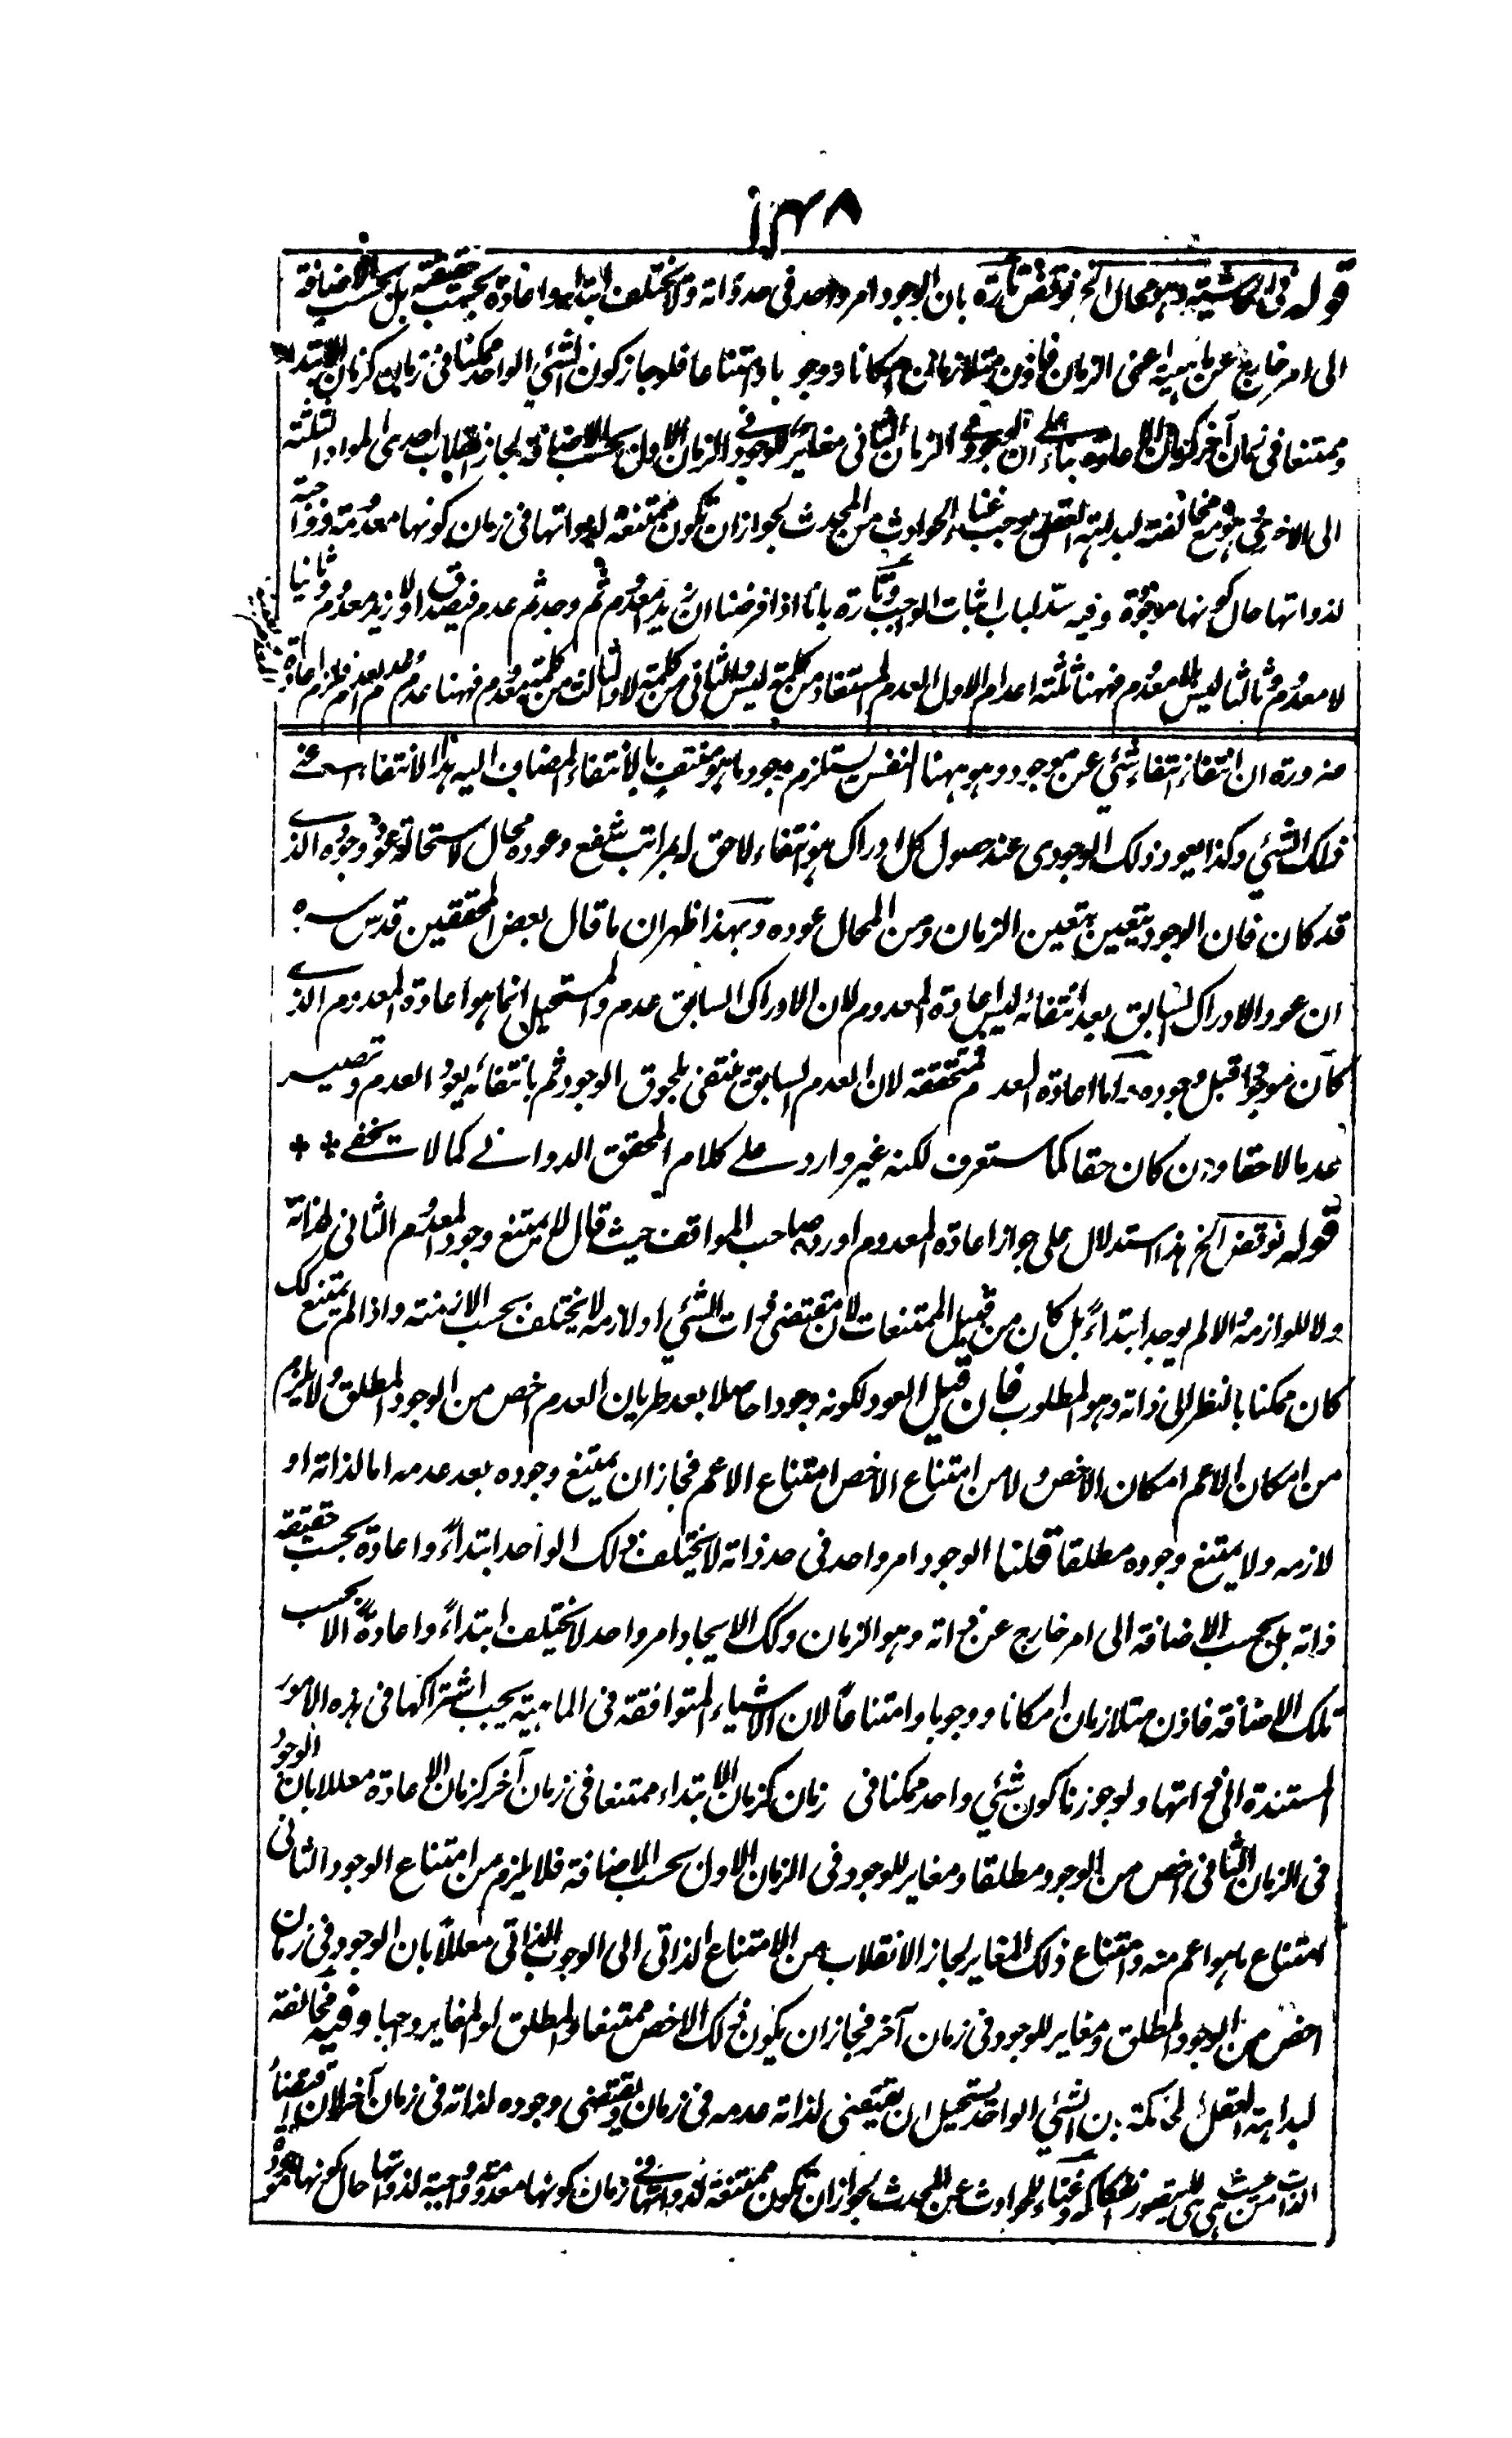 ١٣٨
قوله فى الحاشية وهو محال الخ نوقض تارة بان الوجود امر واحد فى حد ذاته ولا يختلف ابتداء واعادة بحسب حقيقته بل بحسب الاضافة
الى امر خارج عن ماهيته اعنى الزمان فاذن متلازمان امكانا ووجوبا وامتناعا فلو جاز كون الشئ الواحد ممكنا فى زمان كزمان الابتداء
وممتنعا فى زمان آخر كزمان الاعادة بناء على ان الوجود فى الزمان الثانى مغاير للوجود فى الزمان الاول بحسب الاضافة لجاز انقلاب احدى المواد الثلثة
الى الاخرى وهو مع مخالفته لبداهة العقل موجب غناء الحوادث من المحدث لجواز ان تكون ممتنعة لذواتها فى زمان كونها معدومة وواجبة
لذواتها حال كونها موجودة وفيه سد لباب اثبات الواجب وتارة بانا اذا فرضنا ان زيد معدوم ثم وجد ثم عدم فيصدق اولا زيد معدوم وثانيا
لا معدوم وثالثا ليس بلا معدوم فههنا ثلثة اعدام الاول العدم المستفاد من كلمة ليس والثانى من كلمة لا والثالث من كلمة معدوم فههنا عدم عدم بعدم فلزم اعادة
ضرورة ان انتفاء انتفاء شئ عن موجود وهو ههنا النفس يستلزم وجود ما هو منتف بالانتفاء المضاف اليه هذا الانتفاء اعنى
ذلك الشئ وكذا يعود ذلك الوجودى عند حصول كل ادراك هو انتفاء لاحق له بمراتب شفع وعوده محال لاستحالة عود وجوده الذى
قد كان فان الوجود يتعين بتعين الزمان ومن المحال عوده وبهذا ظهر ان ما قال بعض المحققين قدس سره
ان عود الادراك السابق بعد انتفائه ليس اعادة المعدوم لان الادراك السابق عدم والمستحيل انما هو اعادة المعدوم الذى
كان موجودا قبل وجوده واما اعادة العدم فمتحققة لان العدم السابق ينتفى بلحوق الوجود ثم بانتفائه يعود العدم وتصير
عدما لاحقا وان كان حقا كما ستعرف لكنه غير وارد على كلام المحقق الدوانى كما لا يخفى
قوله نوقض الخ هذا استدلال على جواز اعادة المعدوم اورده صاحب المواقف حيث قال لا يمتنع وجود المعدوم الثانى لذاته
ولا للوازمه والا لم يوجد ابتداءً بل كان من قبيل الممتنعات لان مقتضى ذات الشئ او لازمه لا يختلف بحسب الازمنة واذا لم يمتنع كك
كان ممكنا بالنظر الى ذاته وهو المطلوب فان قيل العود لكونه وجودا حاصلا بعد طريان العدم اخص من الوجود المطلق ولا يلزم
من امكان الاعم امكان الاخص ولا من امتناع الاخص امتناع الاعم فجاز ان يمتنع وجوده بعد عدمه اما لذاته او
لازمه ولا يمتنع وجوده مطلقا قلنا الوجود امر واحد فى حد ذاته لا يختلف ذلك الواحد ابتداءً واعادة بحسب حقيقته
ذاته بل بحسب الاضافة الى امر خارج عن ذاته وهو الزمان وكك الايجاد امر واحد لا يختلف ابتداءً واعادةً الا بحسب
تلك الاضافة فاذن متلازمان امكانا ووجوبا وامتناعاً لان الاشياء المتوافقة فى الماهية يجب اشتراكها فى هذه الامور
المستندة الى ذواتها ولو جوزنا كون شئ واحد ممكنا فى زمان كزمان الابتداء ممتنعا فى زمان آخر كزمان الاعادة معللا بان الوجود
فى الزمان الثانى اخص من الوجود مطلقا ومغاير للوجود فى الزمان الاول بحسب الاضافة فلا يلزم من امتناع الوجود الثانى
امتناع ما هو اعم منه وامتناع ذلك المغاير لجاز الانقلاب من الامتناع الذاتى الى الوجوب الذاتى معللاً بان الوجود فى زمان
اخص من الوجود المطلق ومغاير للوجود فى زمان آخر فجاز ان يكون ذلك الاخص ممتنعا والمطلق او المغاير واجبا وفيه مخالفة
لبداهة العقل الحاكمة بان الشئ الواحد يستحيل ان يقتضى لذاته عدمه فى زمان ويقتضى وجوده لذاته فى زمان آخر لان اقتضاء
الذات من حيث هى هى لا يتصور انفكاكه وغناء للحوادث عن المحدث لجواز ان تكون ممتنعة لذواتها فى زمان كونها معدومة وواجبة لذواتها حال كونها موجودة